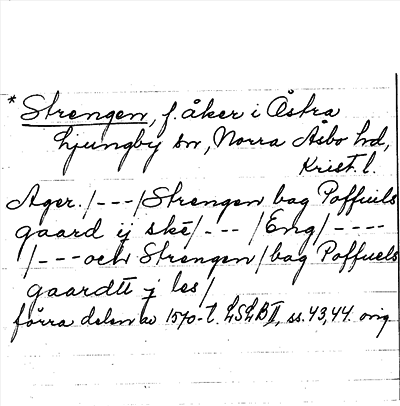 * Strengen, f. åker i Östra
Ljungby sn, Norra Åsbo hd,
Krist. l.
Ager. /---/ Strengen bag Poffuils
gaard ij skē /--- /Eng/ ----
/---och Strengen / bag Poffuels
gaardtt j les /
förra delen av 1570-t. LSLB II, ss. 43, 44. orig